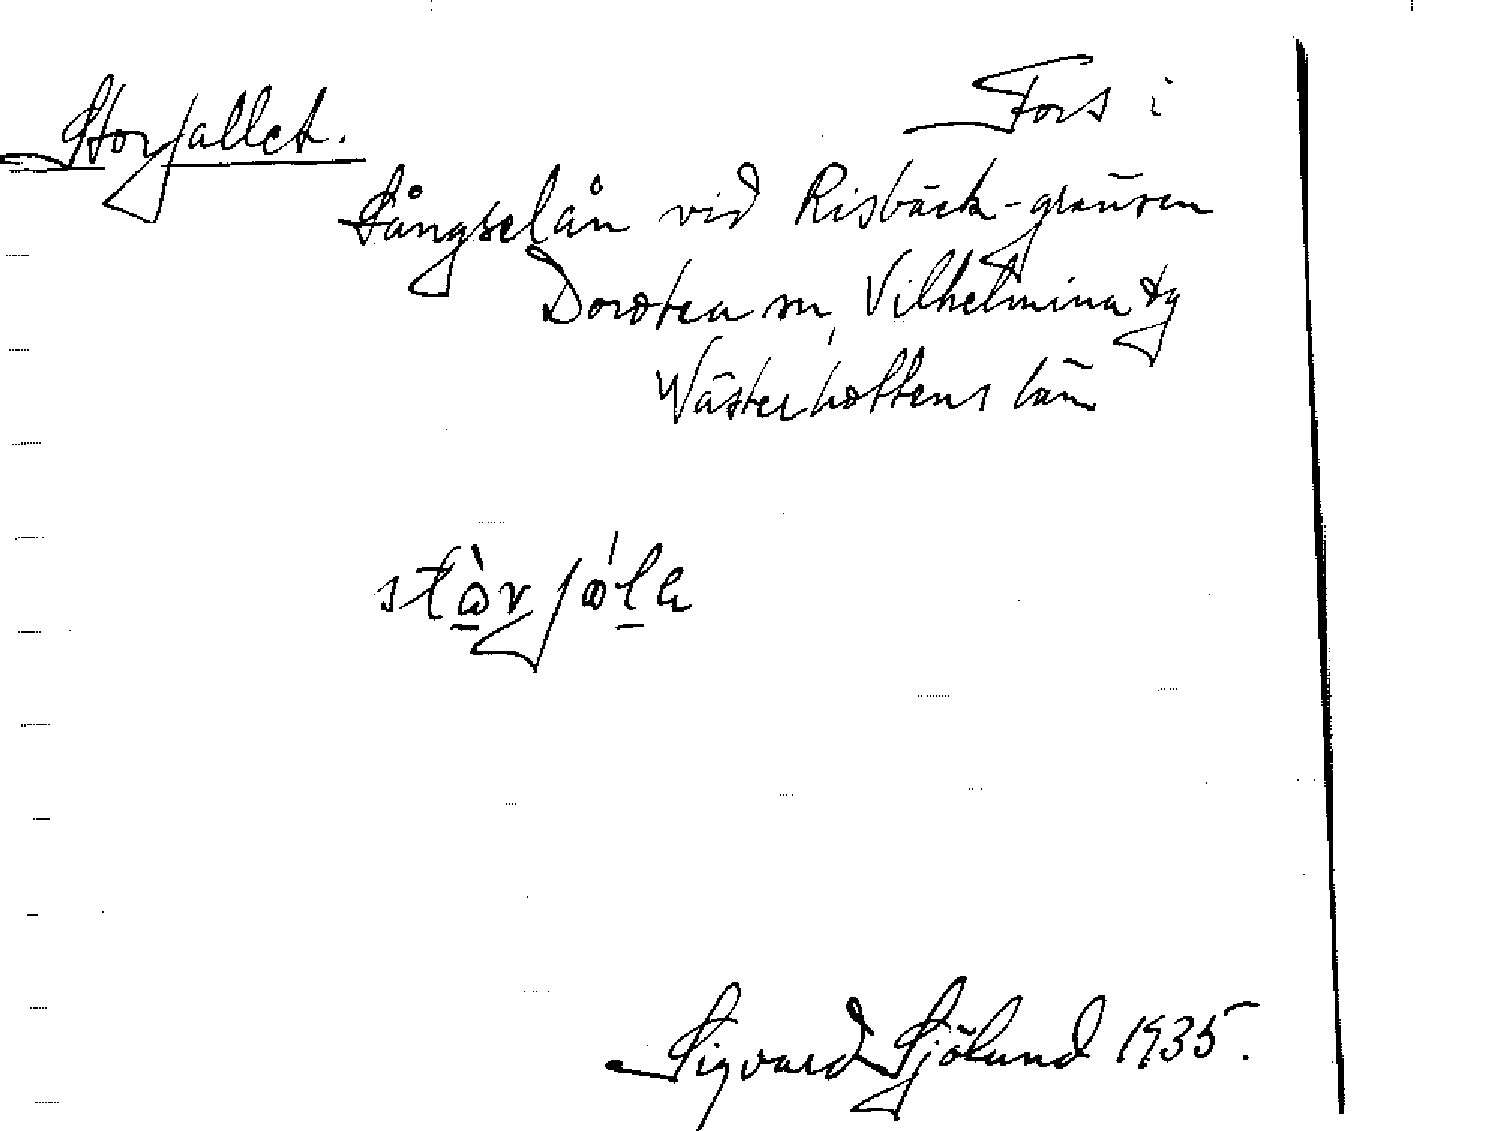 Storfallet.
Fors i
Långselån vid Risbäck-gränsen
Dorotea sn, Vilhelmina tg
Västerbottens län
Sigvard Sjölund 1935.